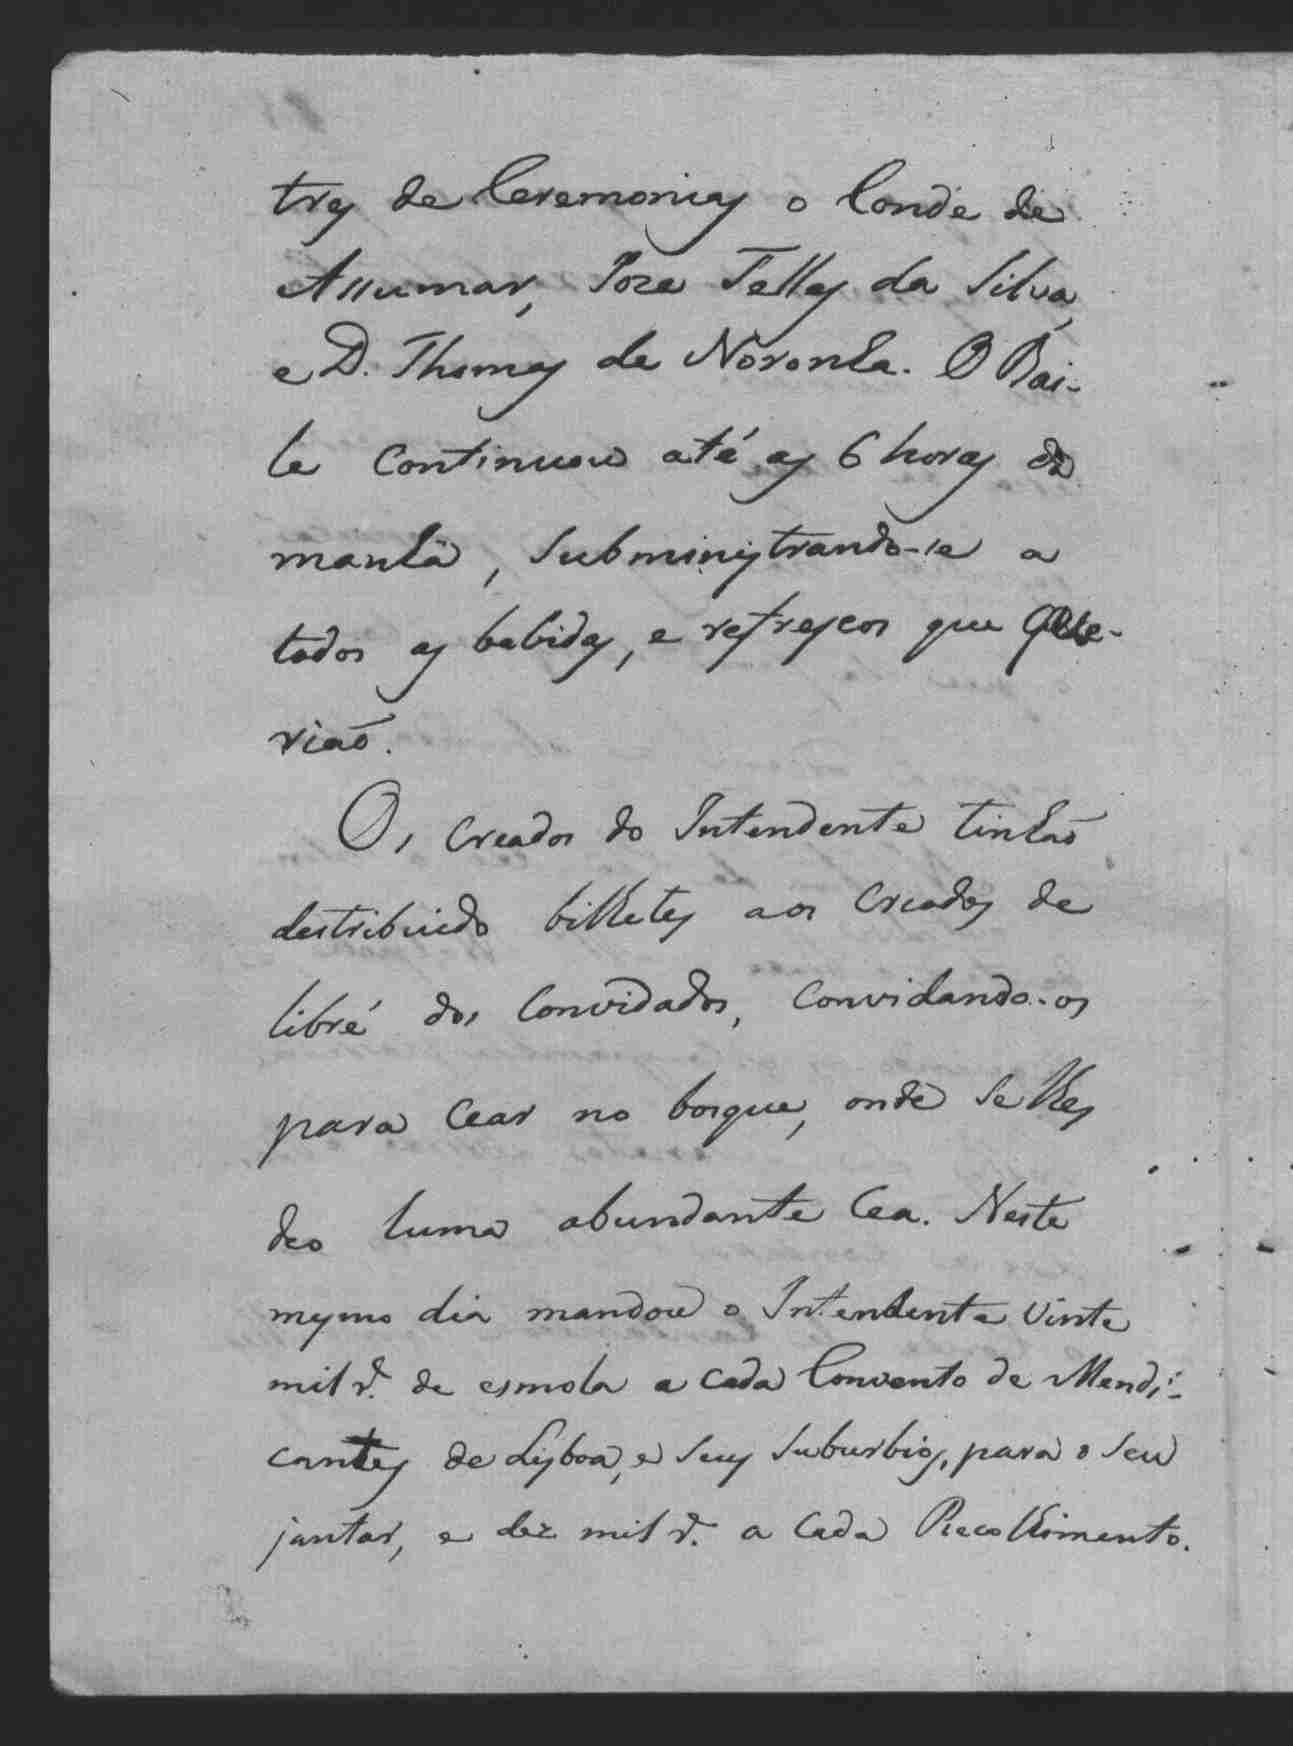 tres de Ceremonias o Conde de
Assumar, Joze Telles da Silva,
e D. Thomas de Noronha. O Bai-
le continuou até as 6 horas da
manhã, subministrando-se a
todos as bebidas, e refrescos que que-
rião.
Os creados do Intendente tinhão
destribuido bilhetes aos creados de
libré dos convidados, convidando-os
para cear no bosque, onde se lhes
deo huma abundante cea. Neste
mesmo dia mandou o Intendente vinte
mil r.s de esmola a cada Convento de Mendi-
cantes de Lisboa, e seus suburbios, para o seu
jantar, e dez mil r.s a cada Recolhimento.